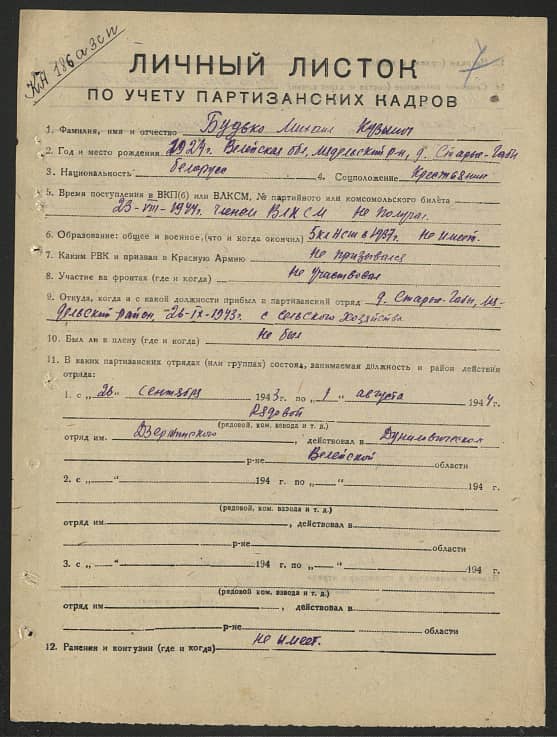 КА 186 а з с п
7
ЛИЧНЫЙ ЛИСТОК
ПО УЧЕТУ ПАРТИЗАНСКИХ КАДРОВ
1. Фамилия, имя и отчество Будько Михаил Кузьмич
2. Год и место рождения 1924г. Велейская обл, Мядельский р-н, д. Старые-Габы
3. Национальность беларус 4. Соцположение Крестьянин
5. Время поступления в ВКП(б) или ВЛКСМ, № партийного или комсомольского билета
23-VIII-1944г. членом ВЛКСМ Не получал.
6. Образование: общее и военное, (что и когда окончил) 5кл НСШ в 1937г. Не имеет.
7. Каким РВК и призван в Красную Армию Не призывался
8. Участие на фронтах (где и когда) Не участвовал
9. Откуда, когда и с какой должности прибыл в партизанский отряд д. Старые-Габы, Мя-
дельский район, 26-IX-1943г. с сельского хозяйства
10. Был ли в плену (где и когда) Не был
11. В каких партизанских отрядах (или группах) состоял, занимаемая должность и район действия
отряда:
1. с „26" сентября 1943г. по „1" августа 1944г.
Рядовой
(рядовой, ком. взвода и т. д.)
отряд им. Дзержинского действовал в Дуниловическом
р-не Велейской области
2. с „ " 194 г. по „ " 194 г.
(рядовой, ком. взвода и т. д.)
отряд им. , действовал в
р-не области
3. с „ " 194 г. по „ " 194 г.
(рядовой ком. взвода и т. д.)
отряд им , действовал в
р-не области
12. Ранения и контузии (где и когда) Не имеет.